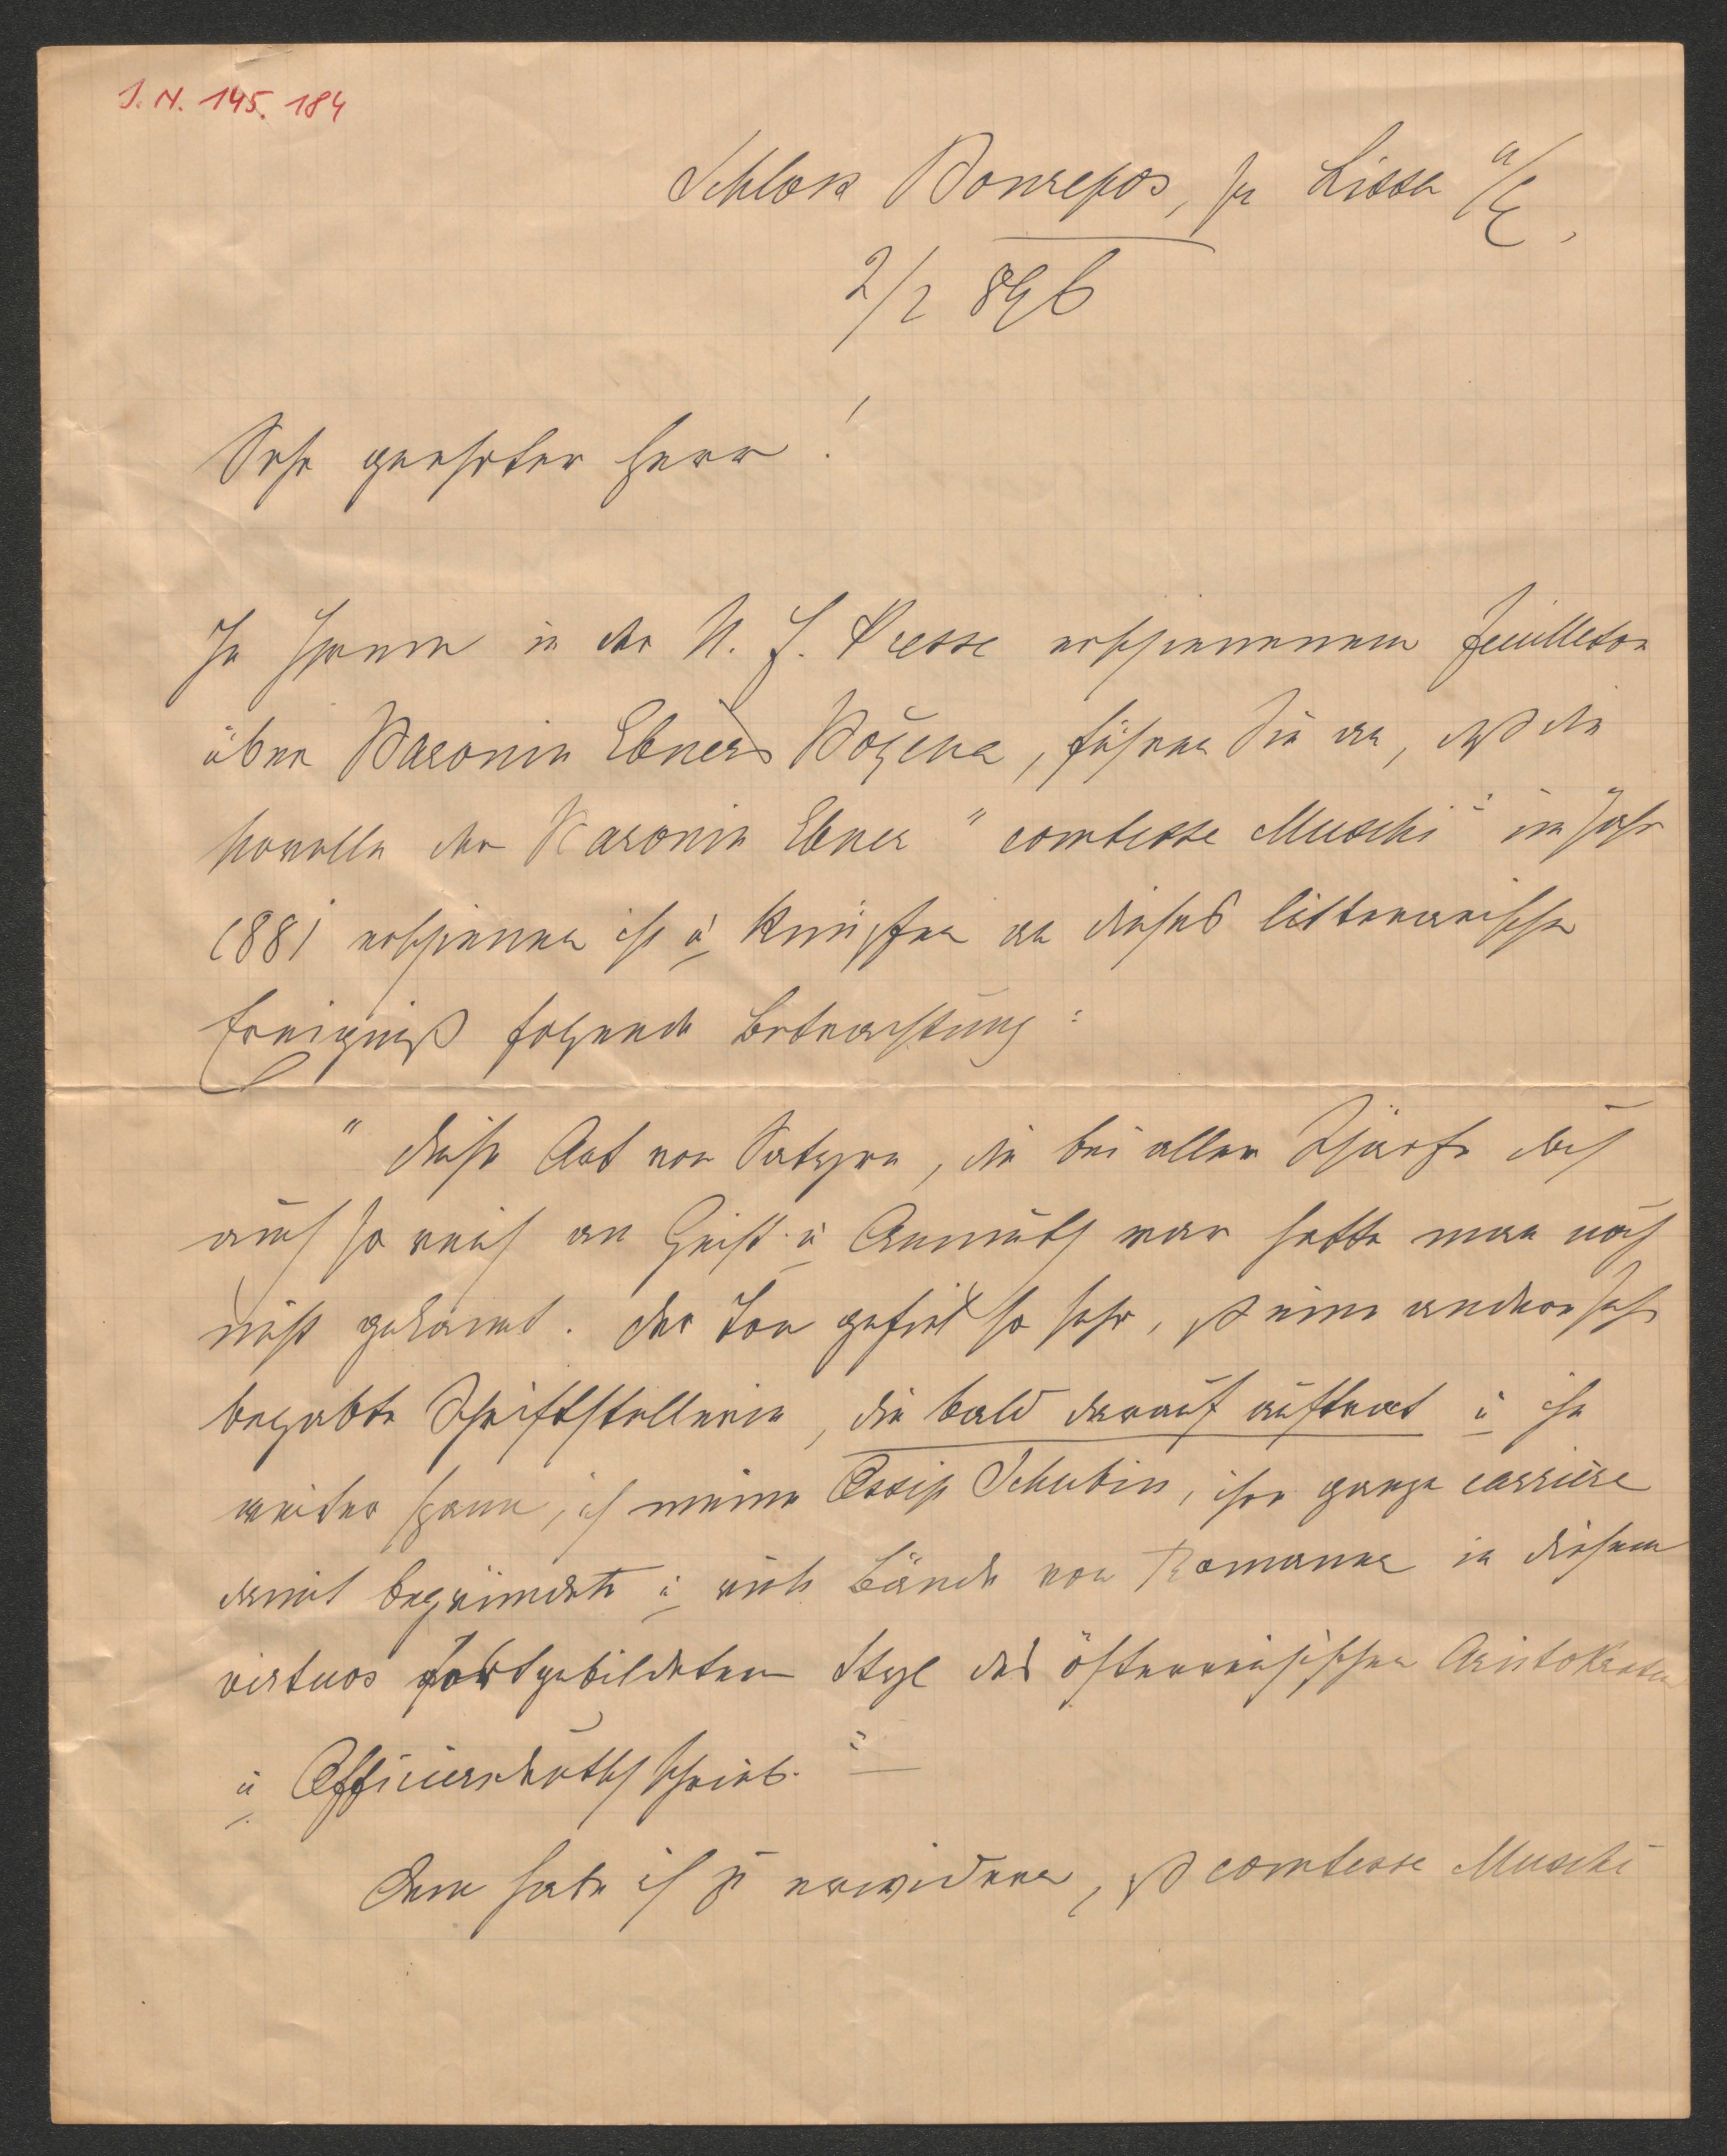 J. N. 145.184
Schloss Bonrepos, p. Lissa a/E,
2/2 896
Sehr geehrter Herr!
In Ihrem in der N. F. Presse erschienenem Feuilleton
über Baronin Ebners Božena, führen Sie an, daß die
Novelle der Baronin Ebner "comtesse Muschi" im Jahr
1881 erschienen ist u knüpfen an dieses litterarische
Ereigniß folgende Betrachtung:
"diese Art von Satyre, die bei aller Schärfe doch
auch so reich an Geist u Anmuth war hatte man noch
nicht gekannt. Der Ton gefiel so sehr, daß eine andere sehr
begabte Schriftstellerin, die bald darauf auftrat u ihn
weiter spann, ich meine Ossip Schubin, ihre ganze carrière
damit begründete u viele Bände von Romanen in diesem
virtuos fortgebildeten Styl des österreichischen Aristokraten
u Officiersdeutsch schrieb."
Dem habe ich zu erwidern, daß comtesse Muschi